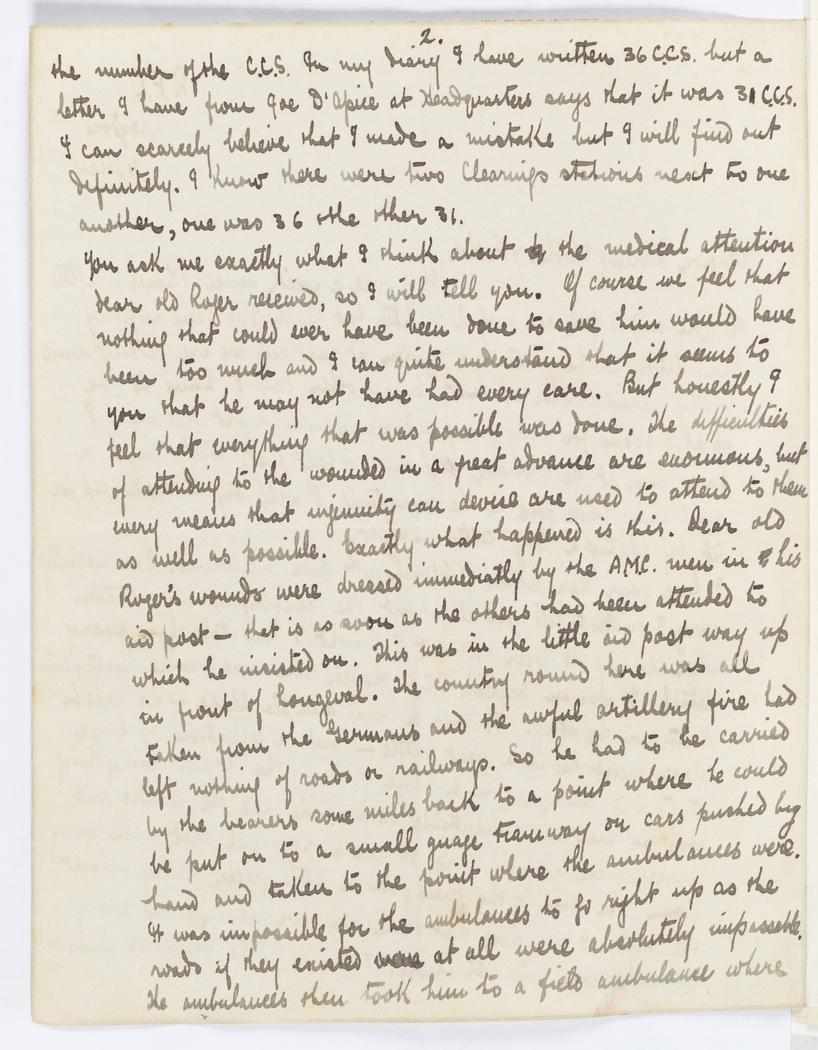 2.
the number of the C.C.S. In my diary I have written 36 C.C.S. but a
letter I have from Joe D'Apice at Headquarters says that it was 31 C.C.S.
I can scarcely believe that I made a mistake but I will find out
definitely. I know there were two Clearings stations next to one
another, one was 36 & the other 31.
You ask me exactly what I think about the medical attention
dear old Roger received, so I will tell you. Of course we feel that
nothing that could ever have been done to save him would have
been too much and I can quite understand that it seems to
you that he may not have had every care. But honestly I
feel that everything that was possible was done. The difficulties
of attending to the wounded in a great advance are enormous, but
every means that ingenuity can devise are used to attend to them
as well as possible. Exactly what happened is this. Dear old
Roger's wounds were dressed immediatly by the A.M.C. men in his
aid post — that is as soon as the others had been attended to
which he insisted on. This was in the little aid post way up
in front of Longeval. The country round here was all
taken from the Germans and the awful artillery fire had
left nothing of roads or railways. So he had to be carried
by the bearers some miles back to a point where he could
be put on to a small guage tramway on cars pushed by
hand and taken to the point where the ambulances were.
It was impossible for the ambulances to go right up as the
roads if they existed at all were absolutely impassable.
The ambulances then took him to a field ambulance where